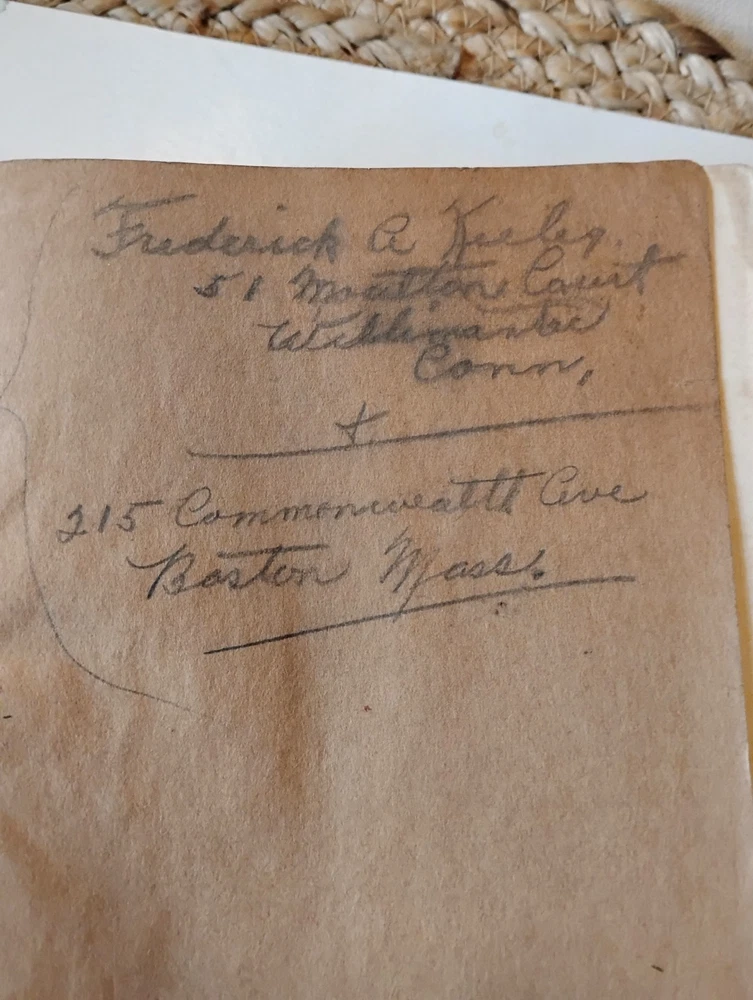 Frederick A
51 Moulton Court
Willimantic
Conn,
+
215 Commonwealth Ave
Boston Mass.